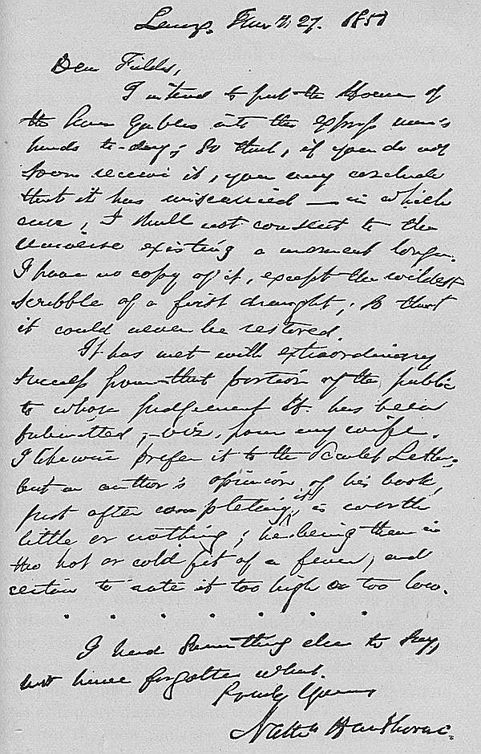 Lenox, Jan'y 27. 1851
Dear Fields,
I intend to put the House of
the Seven Gables into the expressman's
hands to-day; so that, if you do not
soon receive it, you may conclude
that it has miscarried — in which
case, I shall not consent to the
universe existing a moment longer.
I have no copy of it, except the wildest
scribble of a first draught; so that
it could never be restored.
It has met with extraordinary
success from that portion of the public
to whose judgement it has been
submitted; — viz, from my wife.
I likewise prefer it to the Scarlet Letter;
but an author's opinion of his book,
just after completing it, is worth
little or nothing; he being then in
the hot or cold fit of a fever, and
certain to rate it too high or too low.
. . . . . . .
I had something else to say,
but have forgotten what.
Truly Yours
Nath'l Hawthorne.